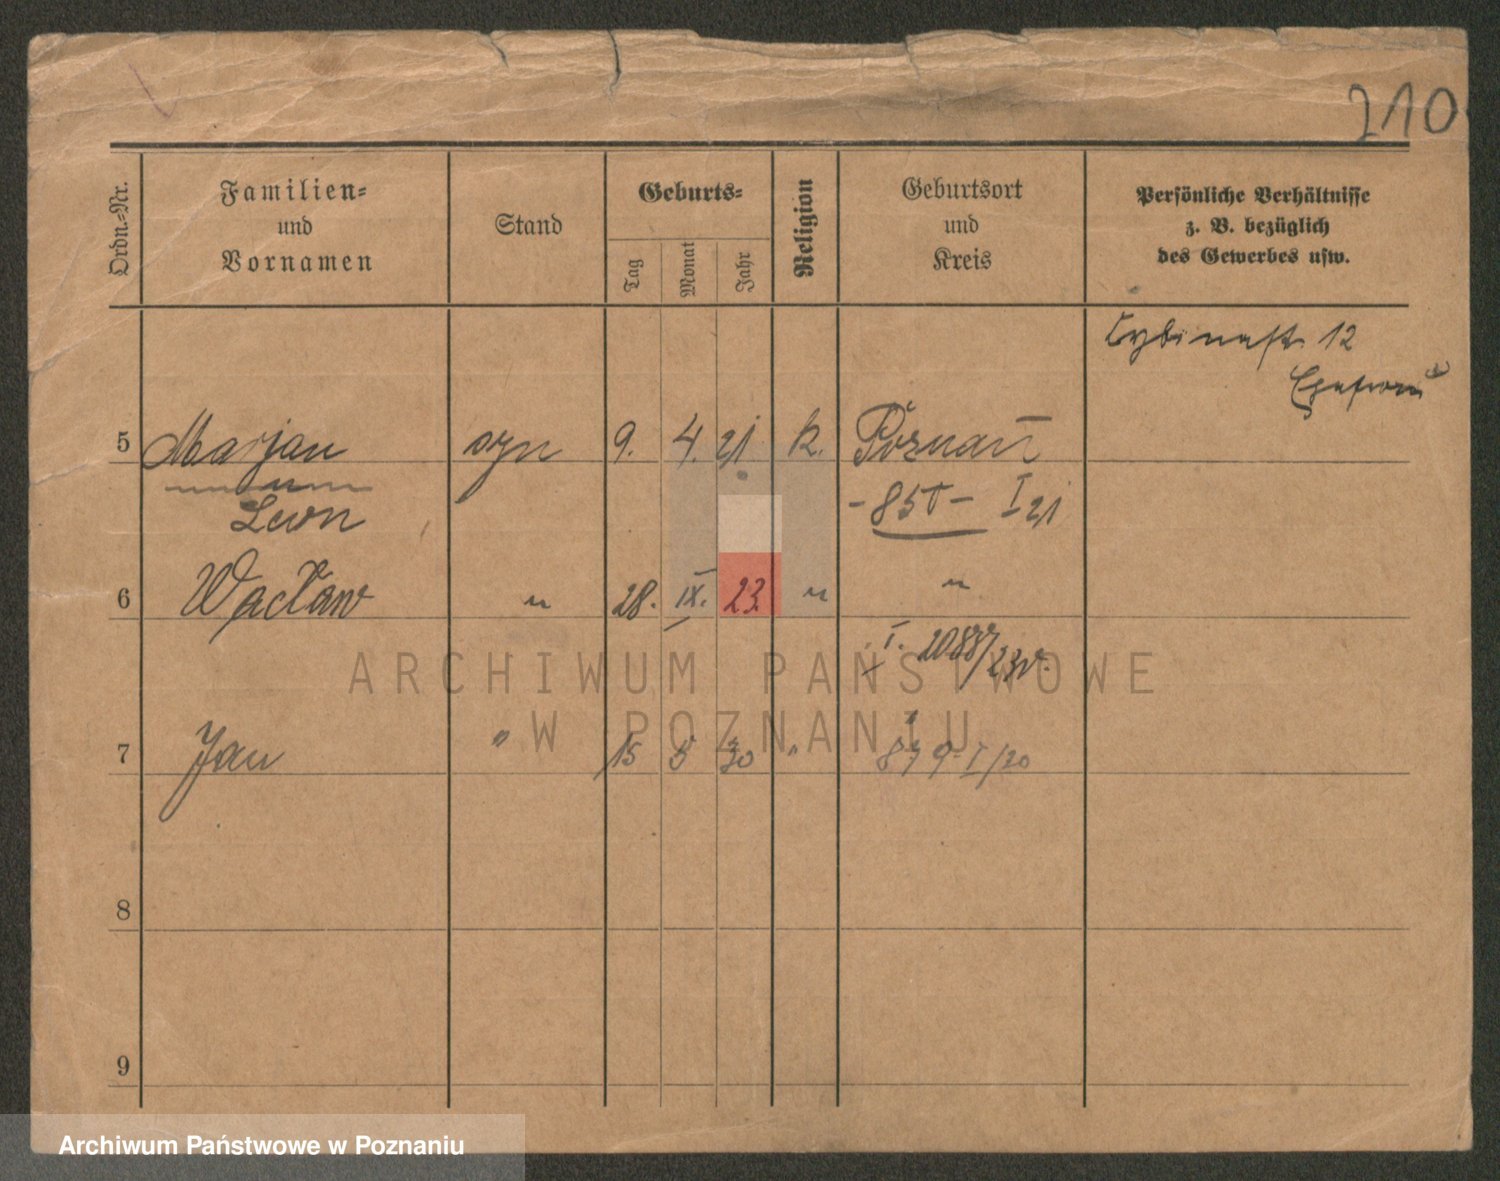 210
Ordn.-Nr.
Familien-
und
Vornamen
Stand
Geburts-
Tag
Monat
Jahr
Religion
Geburtsort
und
Kreis
Persönliche Verhältnisse
z. B. bezüglich
des Gewerbes usw.
Cybinastr. 12
5 Marjan syn 9. 4. 21 k. Poznań
Leon
- 850 - I 21
6 Wacław " 28. IX. 23. " "
I. 2088/23
7 Jan " 15 5 30 "
8
9
ARCHIWUM PAŃSTWOWE
W POZNANIU
Archiwum Państwowe w Poznaniu